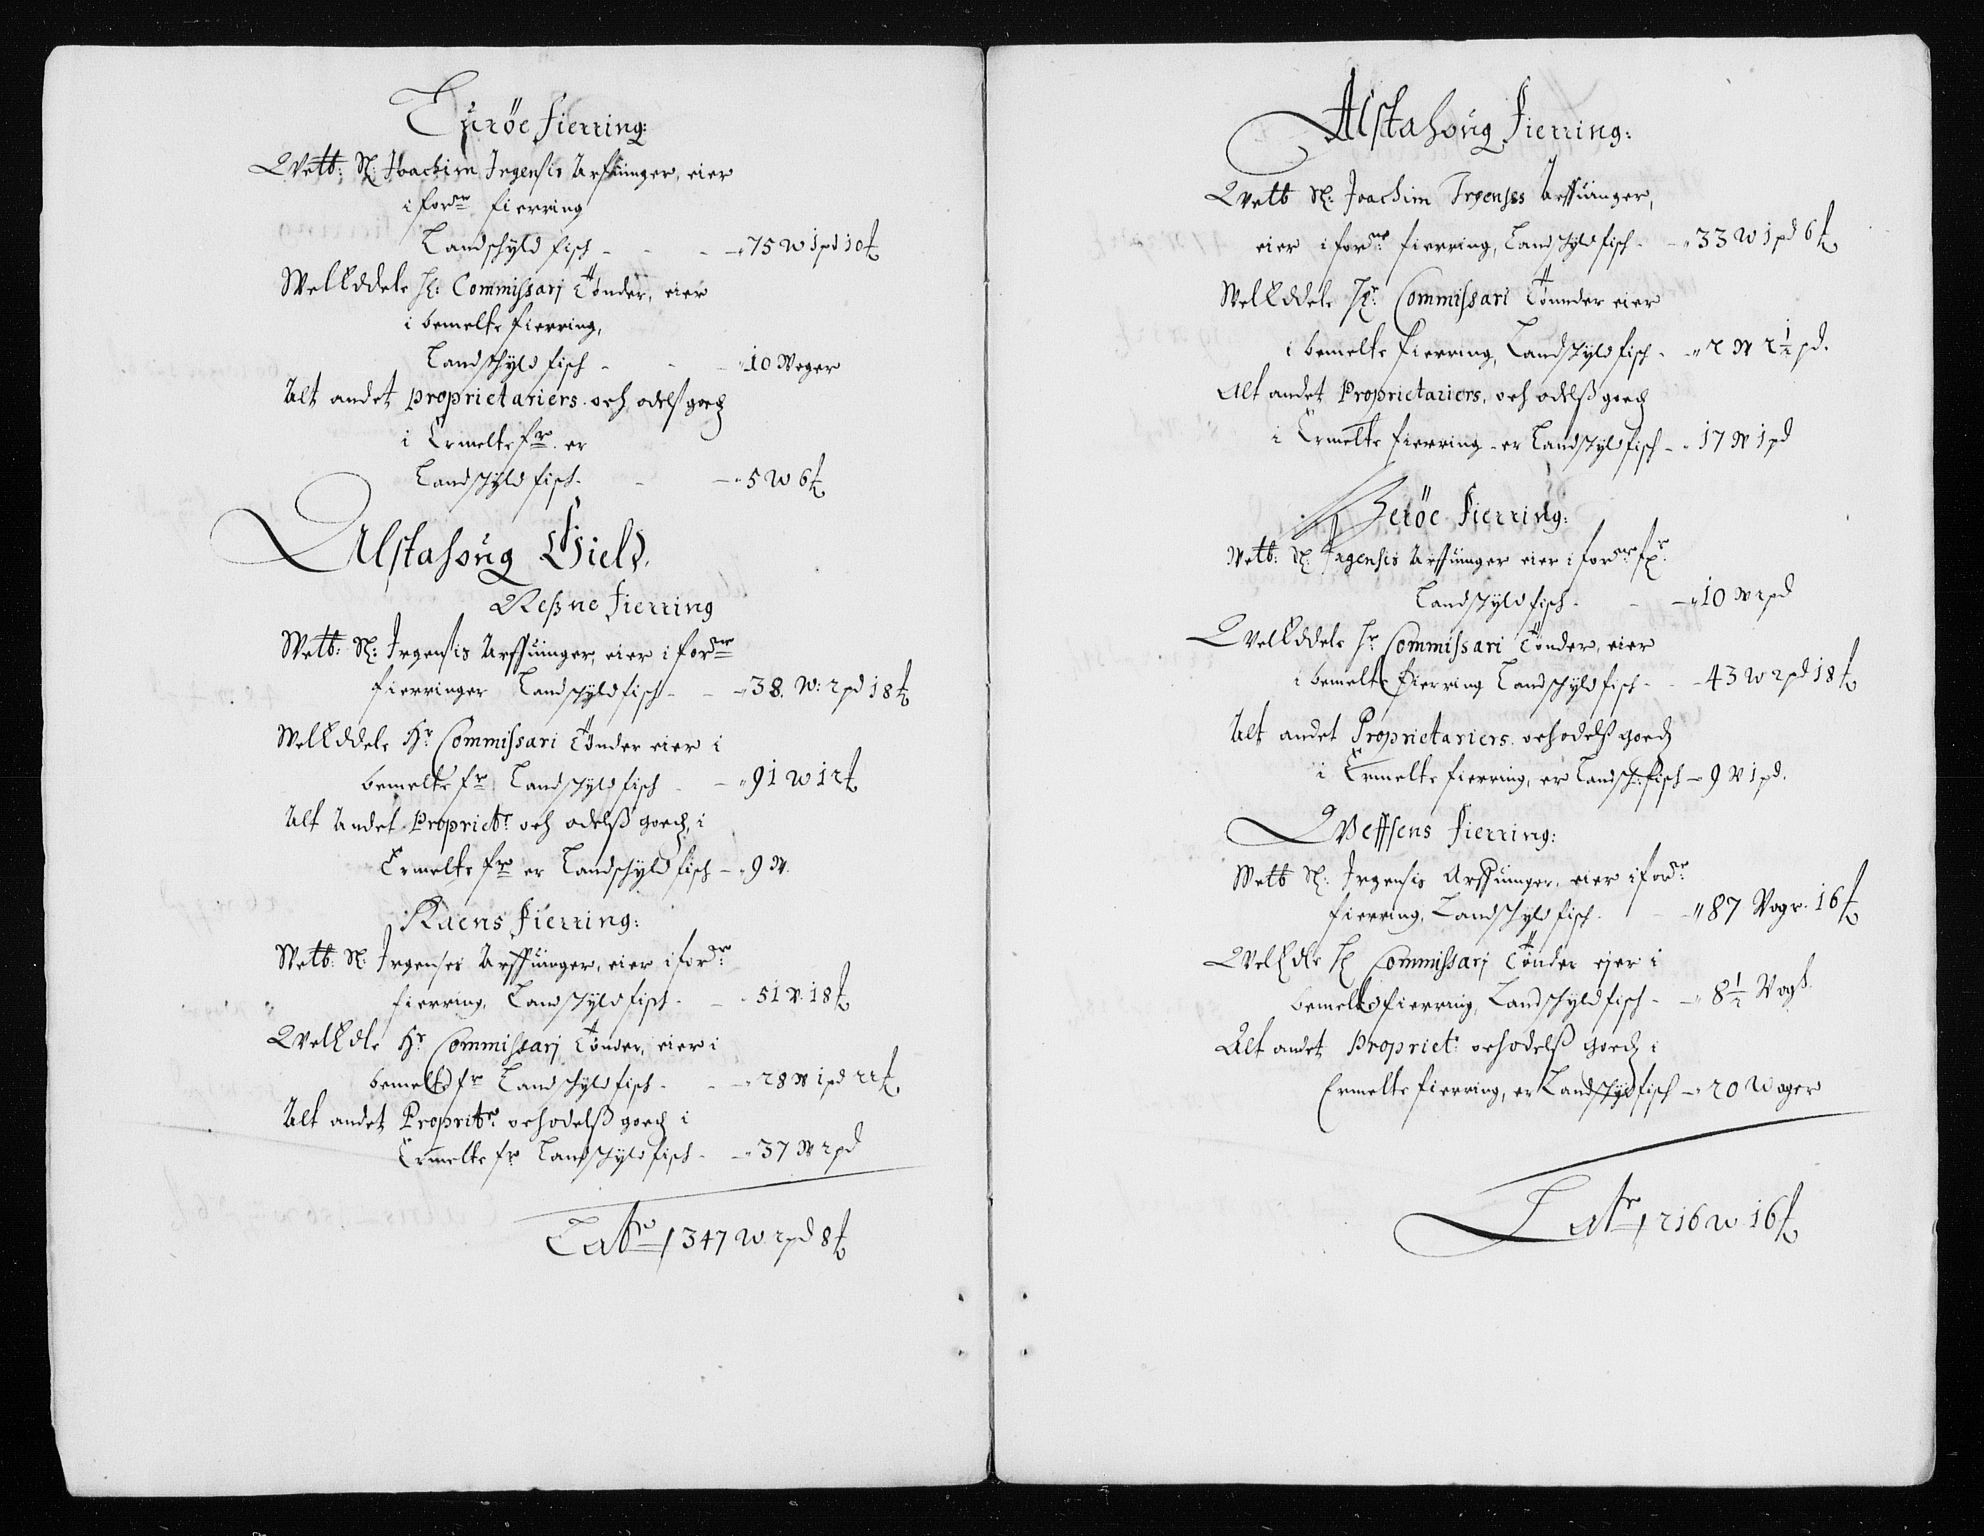 Euröe fierring:
Welb: Sl: Joachim Irgensis Arfuinger, eier
i forne fierring
Landschyld fisch - - - 75 W 1 pd 10 ℔
WelEddele Hr: Commissarj Tönder, eier
i bemelte fierring,
Landschyld fisch - - - 10 Weger
Alt andet proprietariers och odelß goedz
i Ermelte fr: er
Landschyld fisch - - - 5 W 6 ℔
Alstahoug Gield.
Neßne fierring
Welb: Sl: Irgensis Arffuinger, eier i fordne
fierringer Landschyld fisch - - 38. W: 2 pd 18 ℔
WelEddele Hr Commissari Tönder eier i
bemelte fr Landschyld fisch - - 91 W 12 ℔
Alt Andet Propriets och odelß goedz, i
Ermelte fr er Landschyld fisch - 9 W.
Raens fierring:
Welb: Sl: Irgenses Arffuinger, eier i fordr
fierring, Landschyld fisch - - 51 W 18 ℔
WelEdle Hr Commissarj Tönder, eier i
bemelte fr Landschyld fisch - - 28 W 1 pd 22 ℔
Alt andet Propritr och odelß goedz i
Ermelte fr Landschyld fisch - - 37 W 2 pd
Latr 347 W 2 pd 8 ℔
Alstahoug fierring:
Welb Sl: Joachim Irgenses Arffuinger,
eier i fordne fierring, Landschyld fisch - - 33 W 1 pd 6 ℔
WelEddele Hr: Commissari Tönnder eier
i bemelte fierring, Landschyld fisch - - 2 W 2½ pd.
Alt andet Proprietariers, och odelß goedz
i Ermelte fierring - er Landschyld fisch - - 17 W 1 pd
Heröe fierring:
Welb: Sl: Irgensis Arffuinger eier i fordne fr.
Landschyld fisch - - - 10 W 2 pd
WelEddele Hr Commissari Tönder, eier
i bemelte fierring Landschyld fisch - - 43 W 2 pd 18 ℔
Alt andet Proprietariers och odelß goedz
i Ermelte fierring, er Landsch: fisch - 9 W 1 pd.
Weffsens fierring:
Welb Sl: Irgensis Arffuinger, eier i fordr
fierring, Landschyld fisch - - 87 Vogr. 16 ℔
WelEdle Hr Commissarj Tönder ejer i
bemelte fierring, Landschyld fisch - - 8½ Vogl.
Alt andet Propriet: och odelß goedz i
Ermelte fierring, er Landschyld fisch - - 20 Woger
Latr 216 W 16 ℔